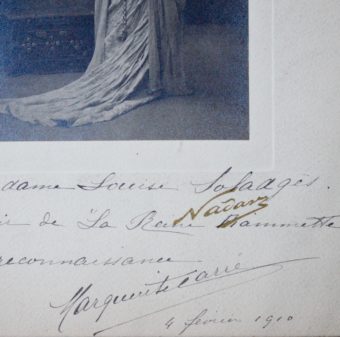 dame Louise Soladgès.
ir de "La Reine Fiammette
Nadar
reconnaissance
Marguerite Carré
4 février 1910